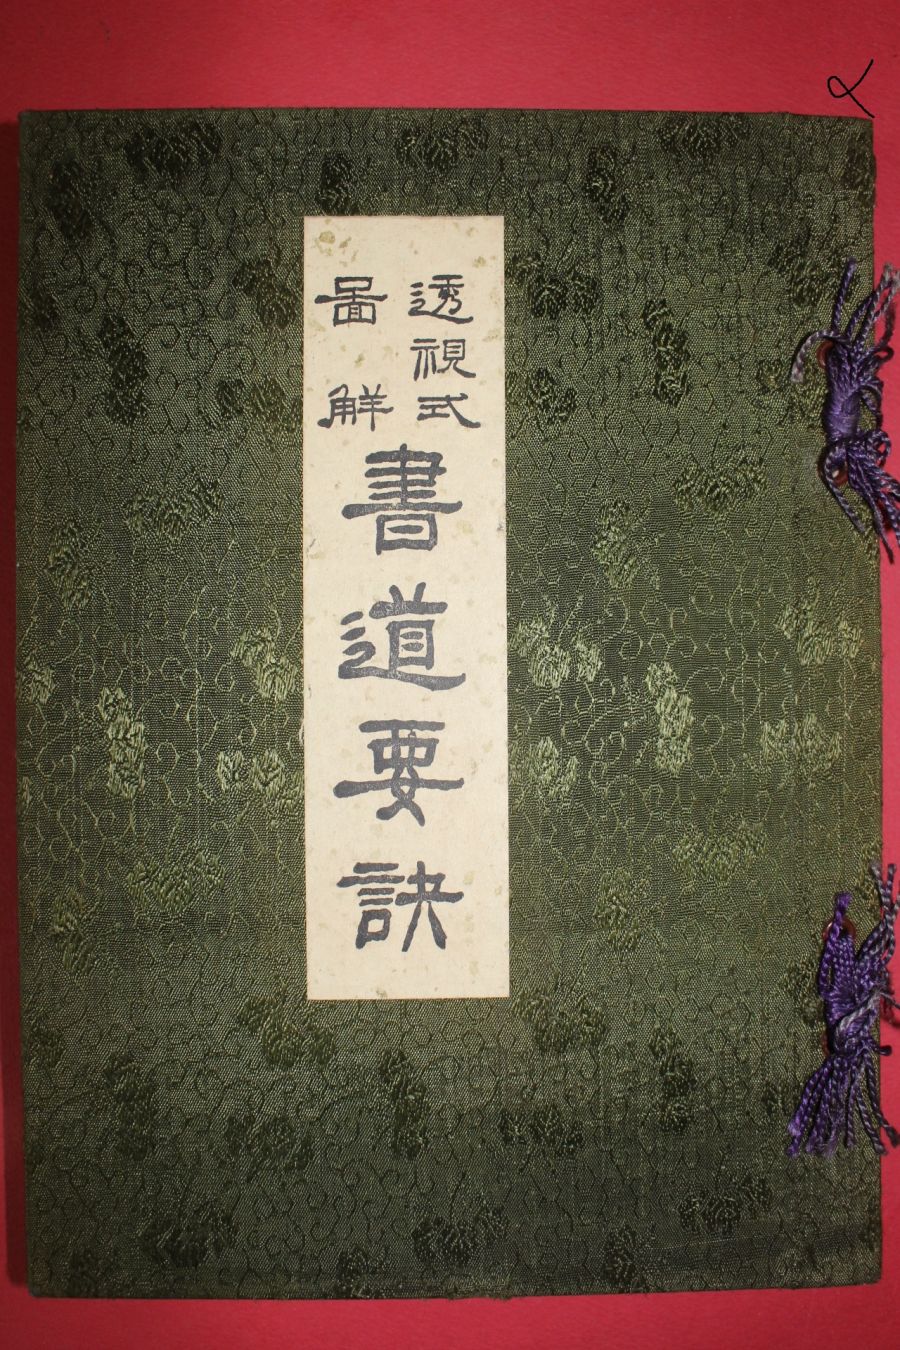 透視式
圖解
書道要訣